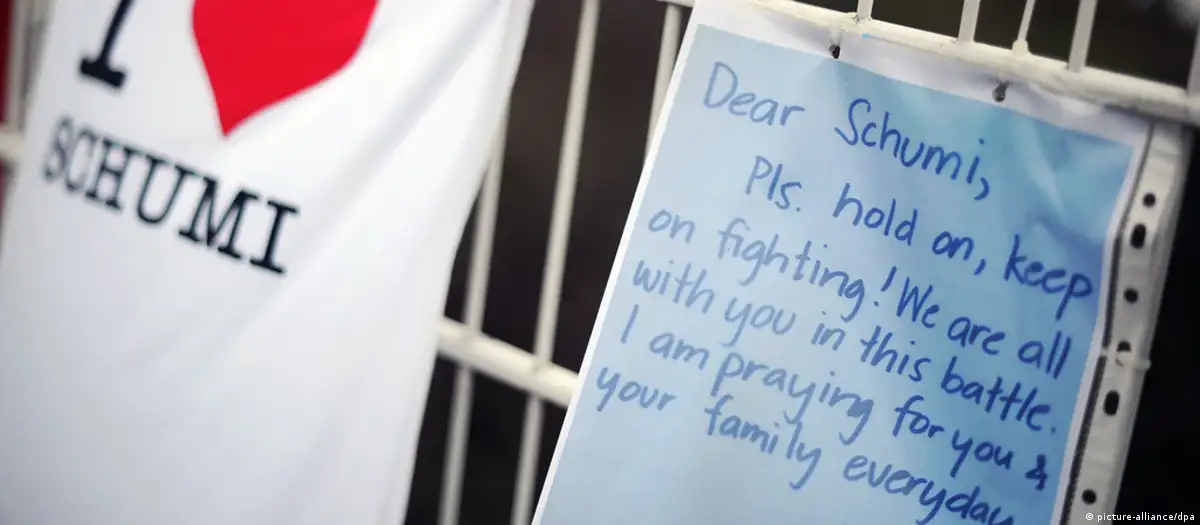 I
SCHUMI
Dear Schumi,
Pls. hold on, keep
on fighting! We are all
with you in this battle.
I am praying for you &
your family everyday
© picture-alliance/dpa